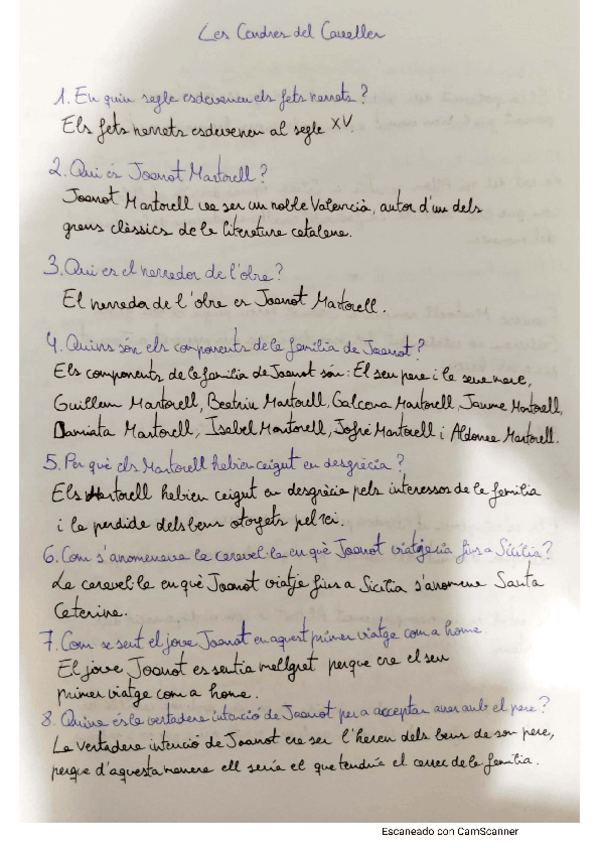 Les Cendres del Cavaller
1. En quin segle esdevenen els fets narrats?
Els fets narrats esdevenen al segle XV.
2. Qui és Joanot Martorell?
Joanot Martorell va ser un noble Valencià, autor d'un dels
grans clàssics de la literatura catalana.
3. Qui es el narrador de l'obra?
El narrador de l'obra es Joanot Martorell.
4. Quins són els components de la família de Joanot?
Els components de la família de Joanot són: El seu pare i la seva mare,
Guillem Martorell, Beatriu Martorell, Galcerna Martorell, Jaume Martorell,
Damiata Martorell, Isabel Martorell, Jofré Martorell i Aldonça Martorell.
5. Per què els Martorell habien caigut en desgràcia?
Els Martorell habien caigut en desgràcia pels interessos de la família
i la perdida dels bens otorgats pel rei.
6. Com s'anomenava la caravel·la en què Joanot viatjaria fins a Sicília?
La caravel·la en què Joanot viatja fins a Sicília s'anomena Santa
Caterina.
7. Com se sent el jove Joanot en aquest primer viatge com a home
El jove Joanot es sentia mallgrat perque era el seu
primer viatge com a home.
8. Quina és la vertadera intenció de Joanot per a acceptar anar amb el pare?
La vertadera intenció de Joanot era ser l'hereu dels bens de son pare,
perque d'aquesta manera ell seria el que tendría el càrrec de la família.
Escaneado con CamScanner